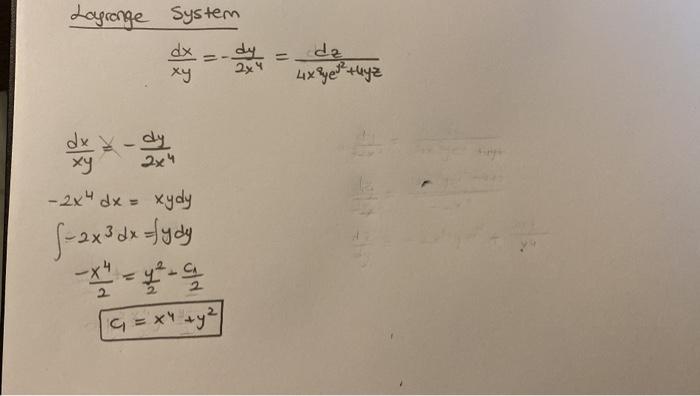 Lagrange System
dx/xy = - dy/2x⁴ = dz/4x⁹ye^y²+4yz
dx/xy = - dy/2x⁴
-2x⁴ dx = xydy
∫-2x³dx = ∫ydy
-x⁴/2 = y²/2 - c₁/2
c₁ = x⁴ + y²